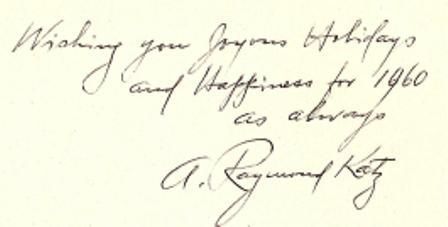 Wishing you Joyous Holidays
and Happiness for 1960
as always
A. Raymond Katz